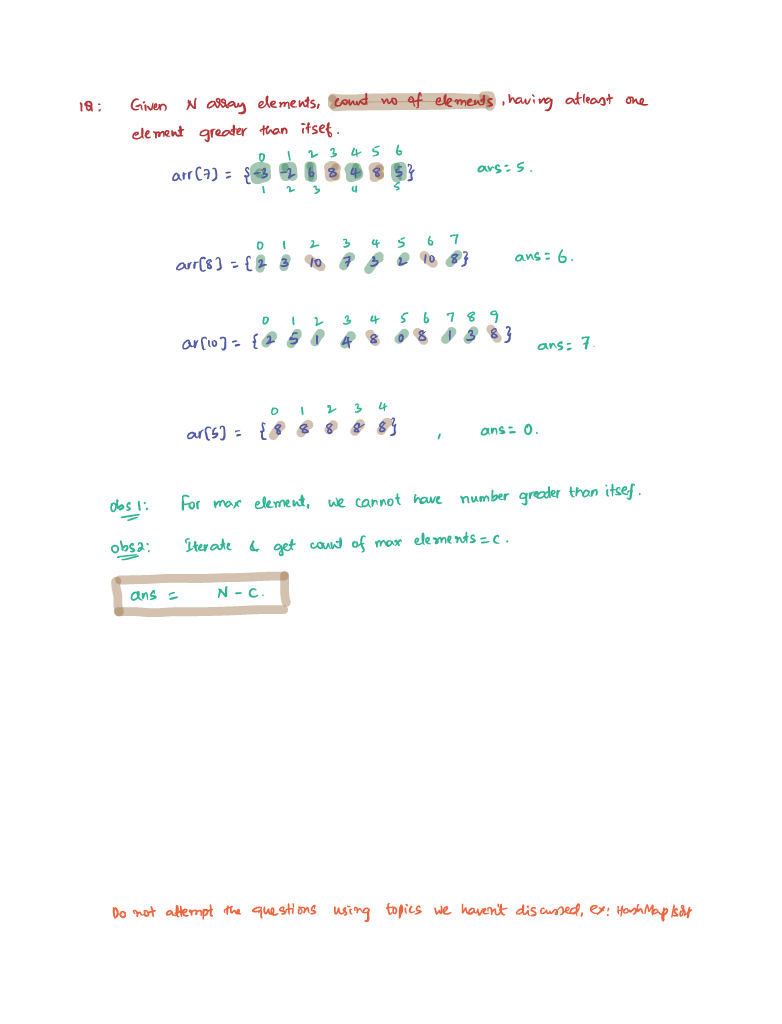 1Q: Given N array elements, count no of elements, having atleast one
element greater than itself.
0 1 2 3 4 5 6
arr[7] = {-3 -2 6 8 4 8 5} ans = 5.
1 2 3 4 5
0 1 2 3 4 5 6 7
arr[8] = {2 3 10 7 3 2 10 8} ans = 6.
0 1 2 3 4 5 6 7 8 9
ar[10] = {2 5 1 4 8 0 8 1 3 8} ans = 7.
0 1 2 3 4
ar[5] = {8 8 8 8 8} , ans = 0.
obs 1: For max element, we cannot have number greater than itself.
obs2: Iterate & get count of max elements = c.
ans = N - c.
Do not attempt the questions using topics we haven't discussed, ex: HashMap